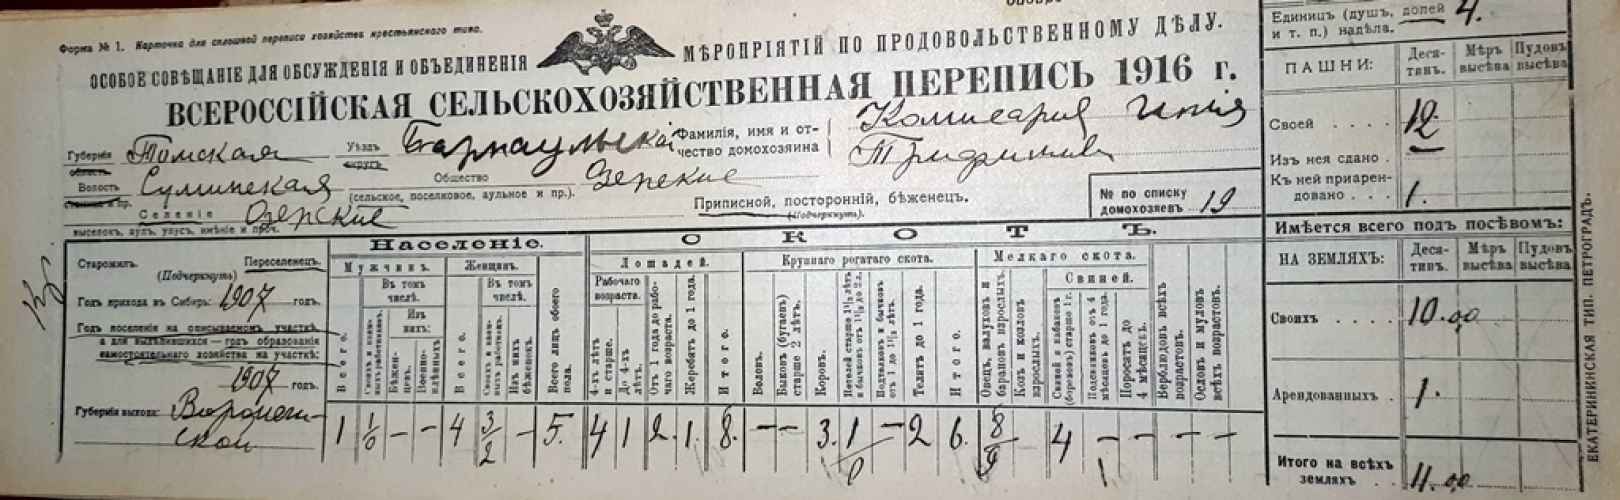 Форма № 1. Карточка для сплошной переписи хозяйства крестьянскаго типа.
ОСОБОЕ СОВѢЩАНІЕ ДЛЯ ОБСУЖДЕНІЯ И ОБЪЕДИНЕНІЯ МѢРОПРІЯТІЙ ПО ПРОДОВОЛЬСТВЕННОМУ ДѢЛУ.
ВСЕРОССІЙСКАЯ СЕЛЬСКОХОЗЯЙСТВЕННАЯ ПЕРЕПИСЬ 1916 г.
Губернія Томская Уѣздъ Барнаульскій Фамилія, имя и от-
область округъ чество домохозяина
Волость Общество Озерские
(сельское, поселковое, аульное и пр.).
Селеніе Озерские
выселокъ, аулъ, улусъ, имѣніе и проч.
Приписной, посторонній, бѣженецъ.
(Подчеркнуть).
№ по списку
домохозяевъ 19
Старожилъ. Переселенецъ.
(Подчеркнуть)
Годъ прихода въ Сибирь: 1907 годъ.
Годъ поселенія на описываемомъ участкѣ,
а для выдѣлившихся — годъ образованія
самостоятельнаго хозяйства на участкѣ:
1907 годъ.
Губернія выхода: Воронеж-
ской
Населеніе.
Мужчинъ. Женщинъ.
Всего.
Въ томъ числѣ.
Изъ нихъ:
Бѣжен-цевъ.
Военно-плѣнныхъ
Всего.
Въ томъ числѣ.
Изъ нихъ бѣженокъ.
Всего лицъ обоего пола.
СКОТЪ.
Лошадей.
Рабочаго возраста.
4-хъ лѣтъ и старше.
До 4-хъ лѣтъ.
Отъ 1 года до рабо-чаго возраста.
Жеребятъ до 1 года.
Итого.
Крупнаго рогатаго скота.
Воловъ.
Быковъ (бугаевъ) старше 2 лѣтъ.
Коровъ.
Нетелей старше 1½ лѣтъ и бычковъ отъ 1½ до 2 л.
Подтелковъ и бычковъ отъ 1 до 1½ лѣтъ.
Телятъ до 1 года.
Итого.
Мелкаго скота.
Овецъ, валуховъ и барановъ взрослыхъ.
Козъ и козловъ взрослыхъ.
Свиней.
Свиней и кабановъ (борововъ) старше 1 г.
Подсвинковъ отъ 4 мѣсяцевъ до 1 года.
Поросятъ до 4 мѣсяцевъ.
Верблюдовъ всѣхъ возрастовъ.
Ословъ и муловъ всѣхъ возрастовъ.
1 1/0 – – 4 3/2 – 5. 4 1 2. 1. 8. – – 3. 1 – 2 6. 8 4 – –
Единицъ (душъ, долей 4.
и т. п.) надѣла.
ПАШНИ: Деся-тинъ. Мѣръ высѣва Пудовъ высѣва
Своей .... 12
Изъ нея сдано .
Къ ней приарен-
довано ... 1.
Имѣется всего подъ посѣвомъ:
НА ЗЕМЛЯХЪ: Деся-тинъ. Мѣръ высѣва Пудовъ высѣва
Своихъ .... 10.00
Арендованныхъ . 1.
Итого на всѣхъ
земляхъ . 11.00
ЕКАТЕРИНИНСКАЯ ТИП. ПЕТРОГРАДЪ.